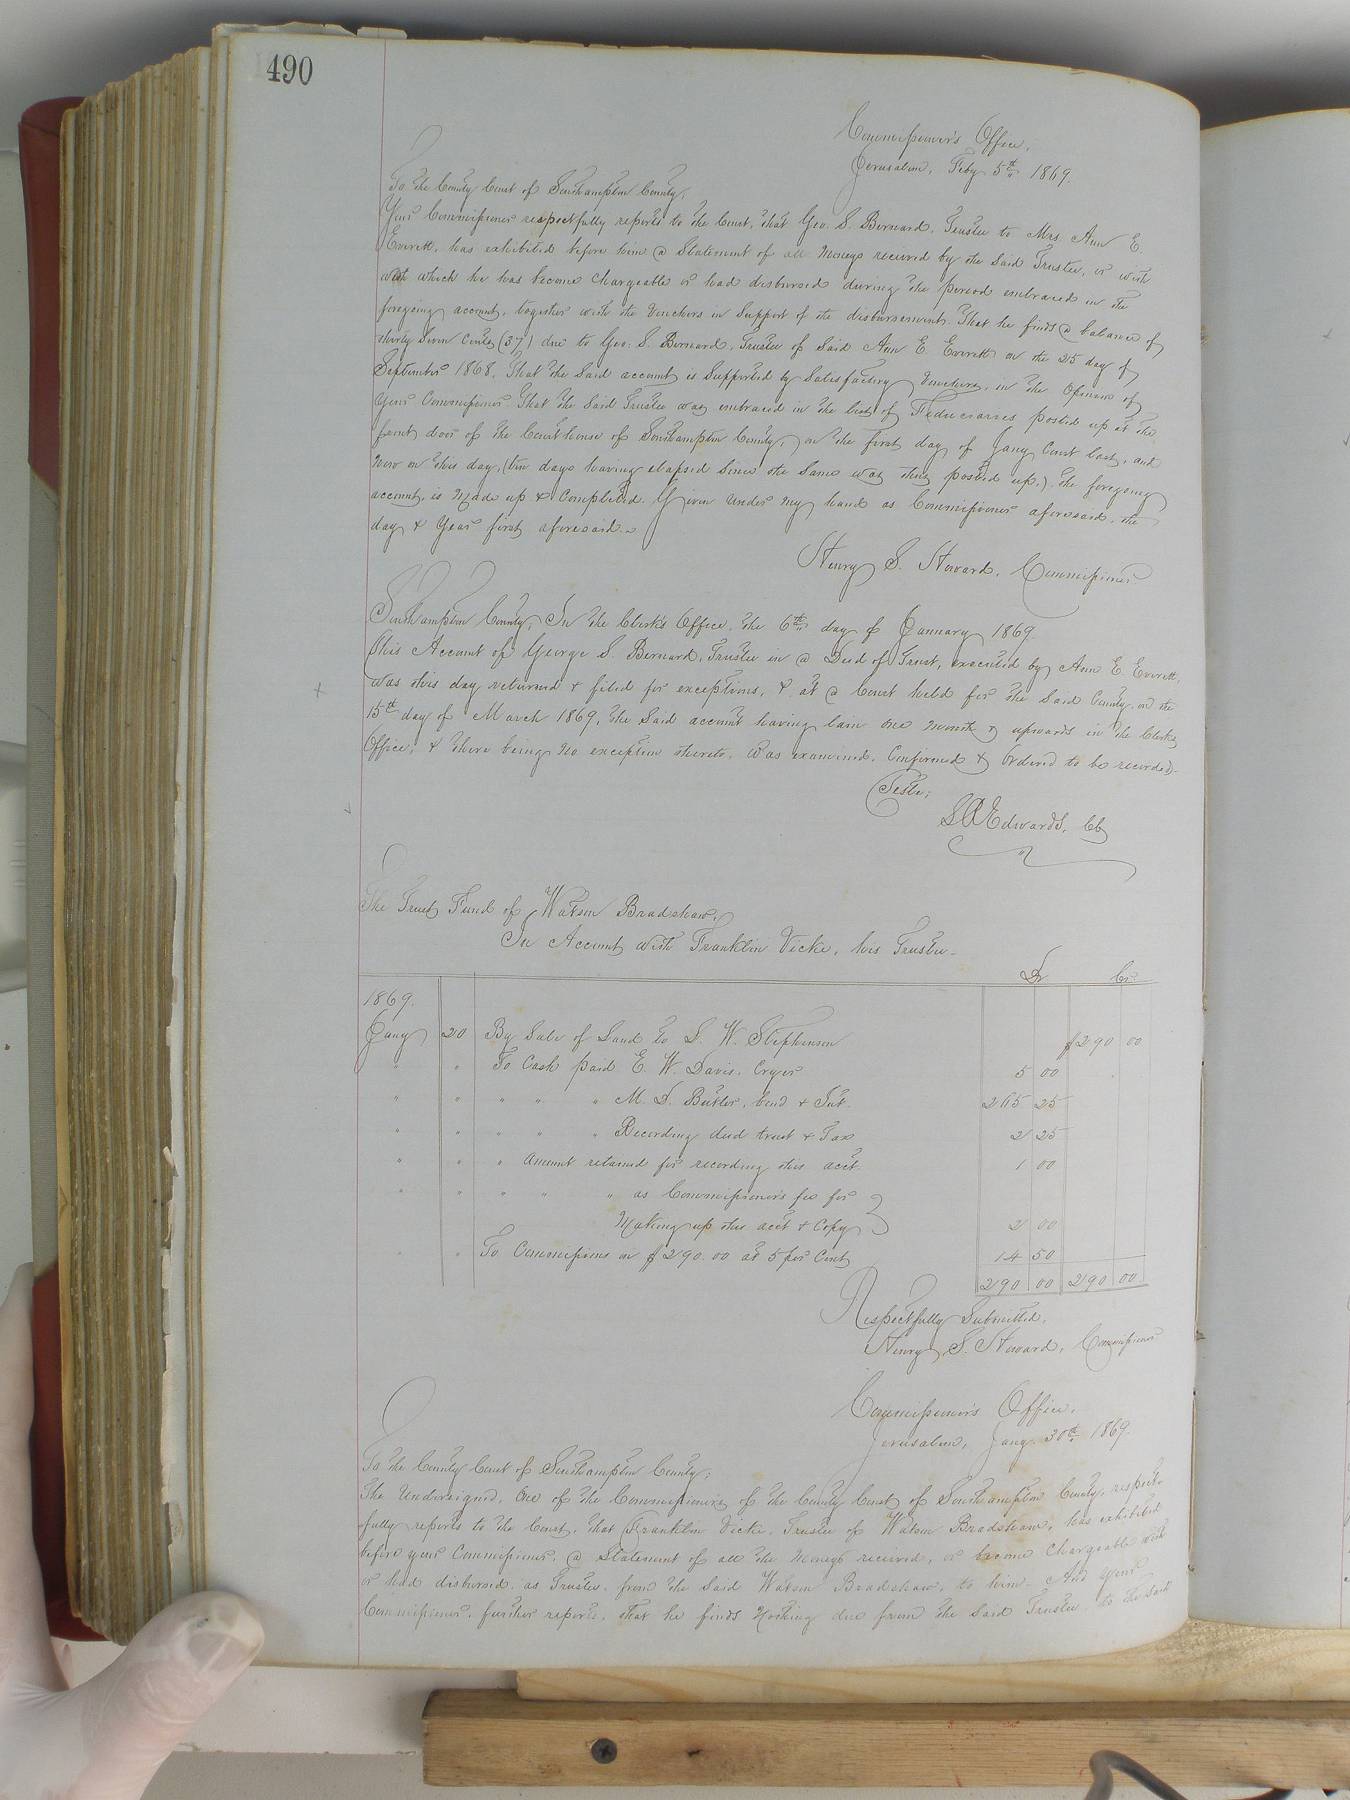 490
Commissioner's Office,
Jerusalem, Feby 5th 1869.
To the County Court of Southampton County,
Your Commissioner respectfully reports to the Court, that Geo. S. Bernard, Trustee to Mrs. Ann E.
Everett, has exhibited before him a Statement of all Moneys received by the Said Trustee, or with
with which he has become Chargeable or had disbursed during the period embraced in the
foregoing account, together with the Vouchers in Support of the disbursements. That he finds a balance of
thirty Seven Cents (37) due to Geo. S. Bernard, Trustee of Said Ann E. Everett on the 25 day of
September 1868. That the Said account is Supported by Satisfactory Vouchers, in the Opinion of
Your Commissioner. That the Said Trustee was embraced in the list of Fiduciaries posted up at the
front door of the Courthouse of Southampton County, on the first day of Jany Court last, and
Now on this day, (ten days having elapsed Since the Same was thus posted up,) the foregoing
account, is Made up & Completed. Given under My hand as Commissioner aforesaid, the
day & Year first aforesaid.
Henry S. Howard, Commissioner
Southampton County, In the Clerk's Office, the 6th day of January 1869.
This Account of George S. Bernard, Trustee in a Deed of Trust, executed by Ann E. Everett,
was this day returned & filed for exceptions, & at a Court held for the Said County, on the
15th day of March 1869, the Said account having lain one month & upwards in the Clerks
Office, & there being no exception thereto, was examined, Confirmed & Ordered to be recorded.
Teste;
L R Edwards, Clk
The Trust Fund of Watson Bradshaw,
In Account with Franklin Vicke, his Trustee.
Dr Cr
1869.
Jany 20 By Sale of Land to S. W. Stephenson $290 00
" " To Cash paid E. W. Davis, Cryer 5 00
" " " " " M. D. Butler, bond & Int. 265 25
" " " " " Recording deed trust & Tax 2 25
" " " Amount retained for recording this acct. 1 00
" " " " " as Commissioner's fee for
Making up this acct & Copy 2 00
" " To Commissions on $290.00 at 5 per Cent 14 50
290 00 290 00
Respectfully Submitted,
Henry S. Howard, Commissioner
Commissioner's Office,
Jerusalem, Jany 30th 1869.
To the County Court of Southampton County;
The Undersigned, One of the Commissioners of the County Court of Southampton County, respect-
fully reports to the Court, that Franklin Vicke, Trustee of Watson Bradshaw, has exhibited
before your Commissioner, a Statement of all the Moneys received, or become Chargeable with
or had disbursed, as Trustee, from the Said Watson Bradshaw, to him. And your
Commissioner, further reports, that he finds Nothing due from the Said Trustee, to the said